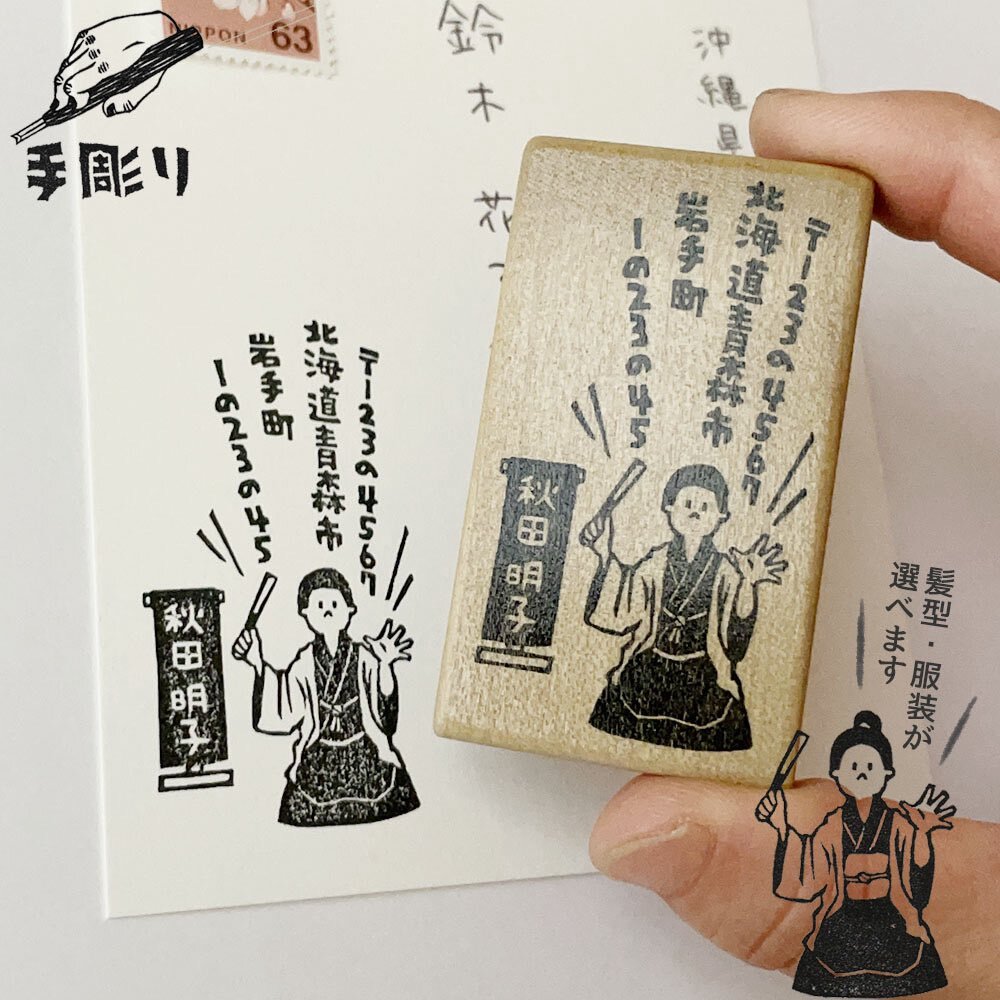 NIPPON 63
手彫り
沖縄県
鈴木 花
〒123の4567
北海道青森市
岩手町
1の23の45
秋田明子
〒123の4567
北海道青森市
岩手町
1の23の45
秋田明子
髪型・服装が
選べます